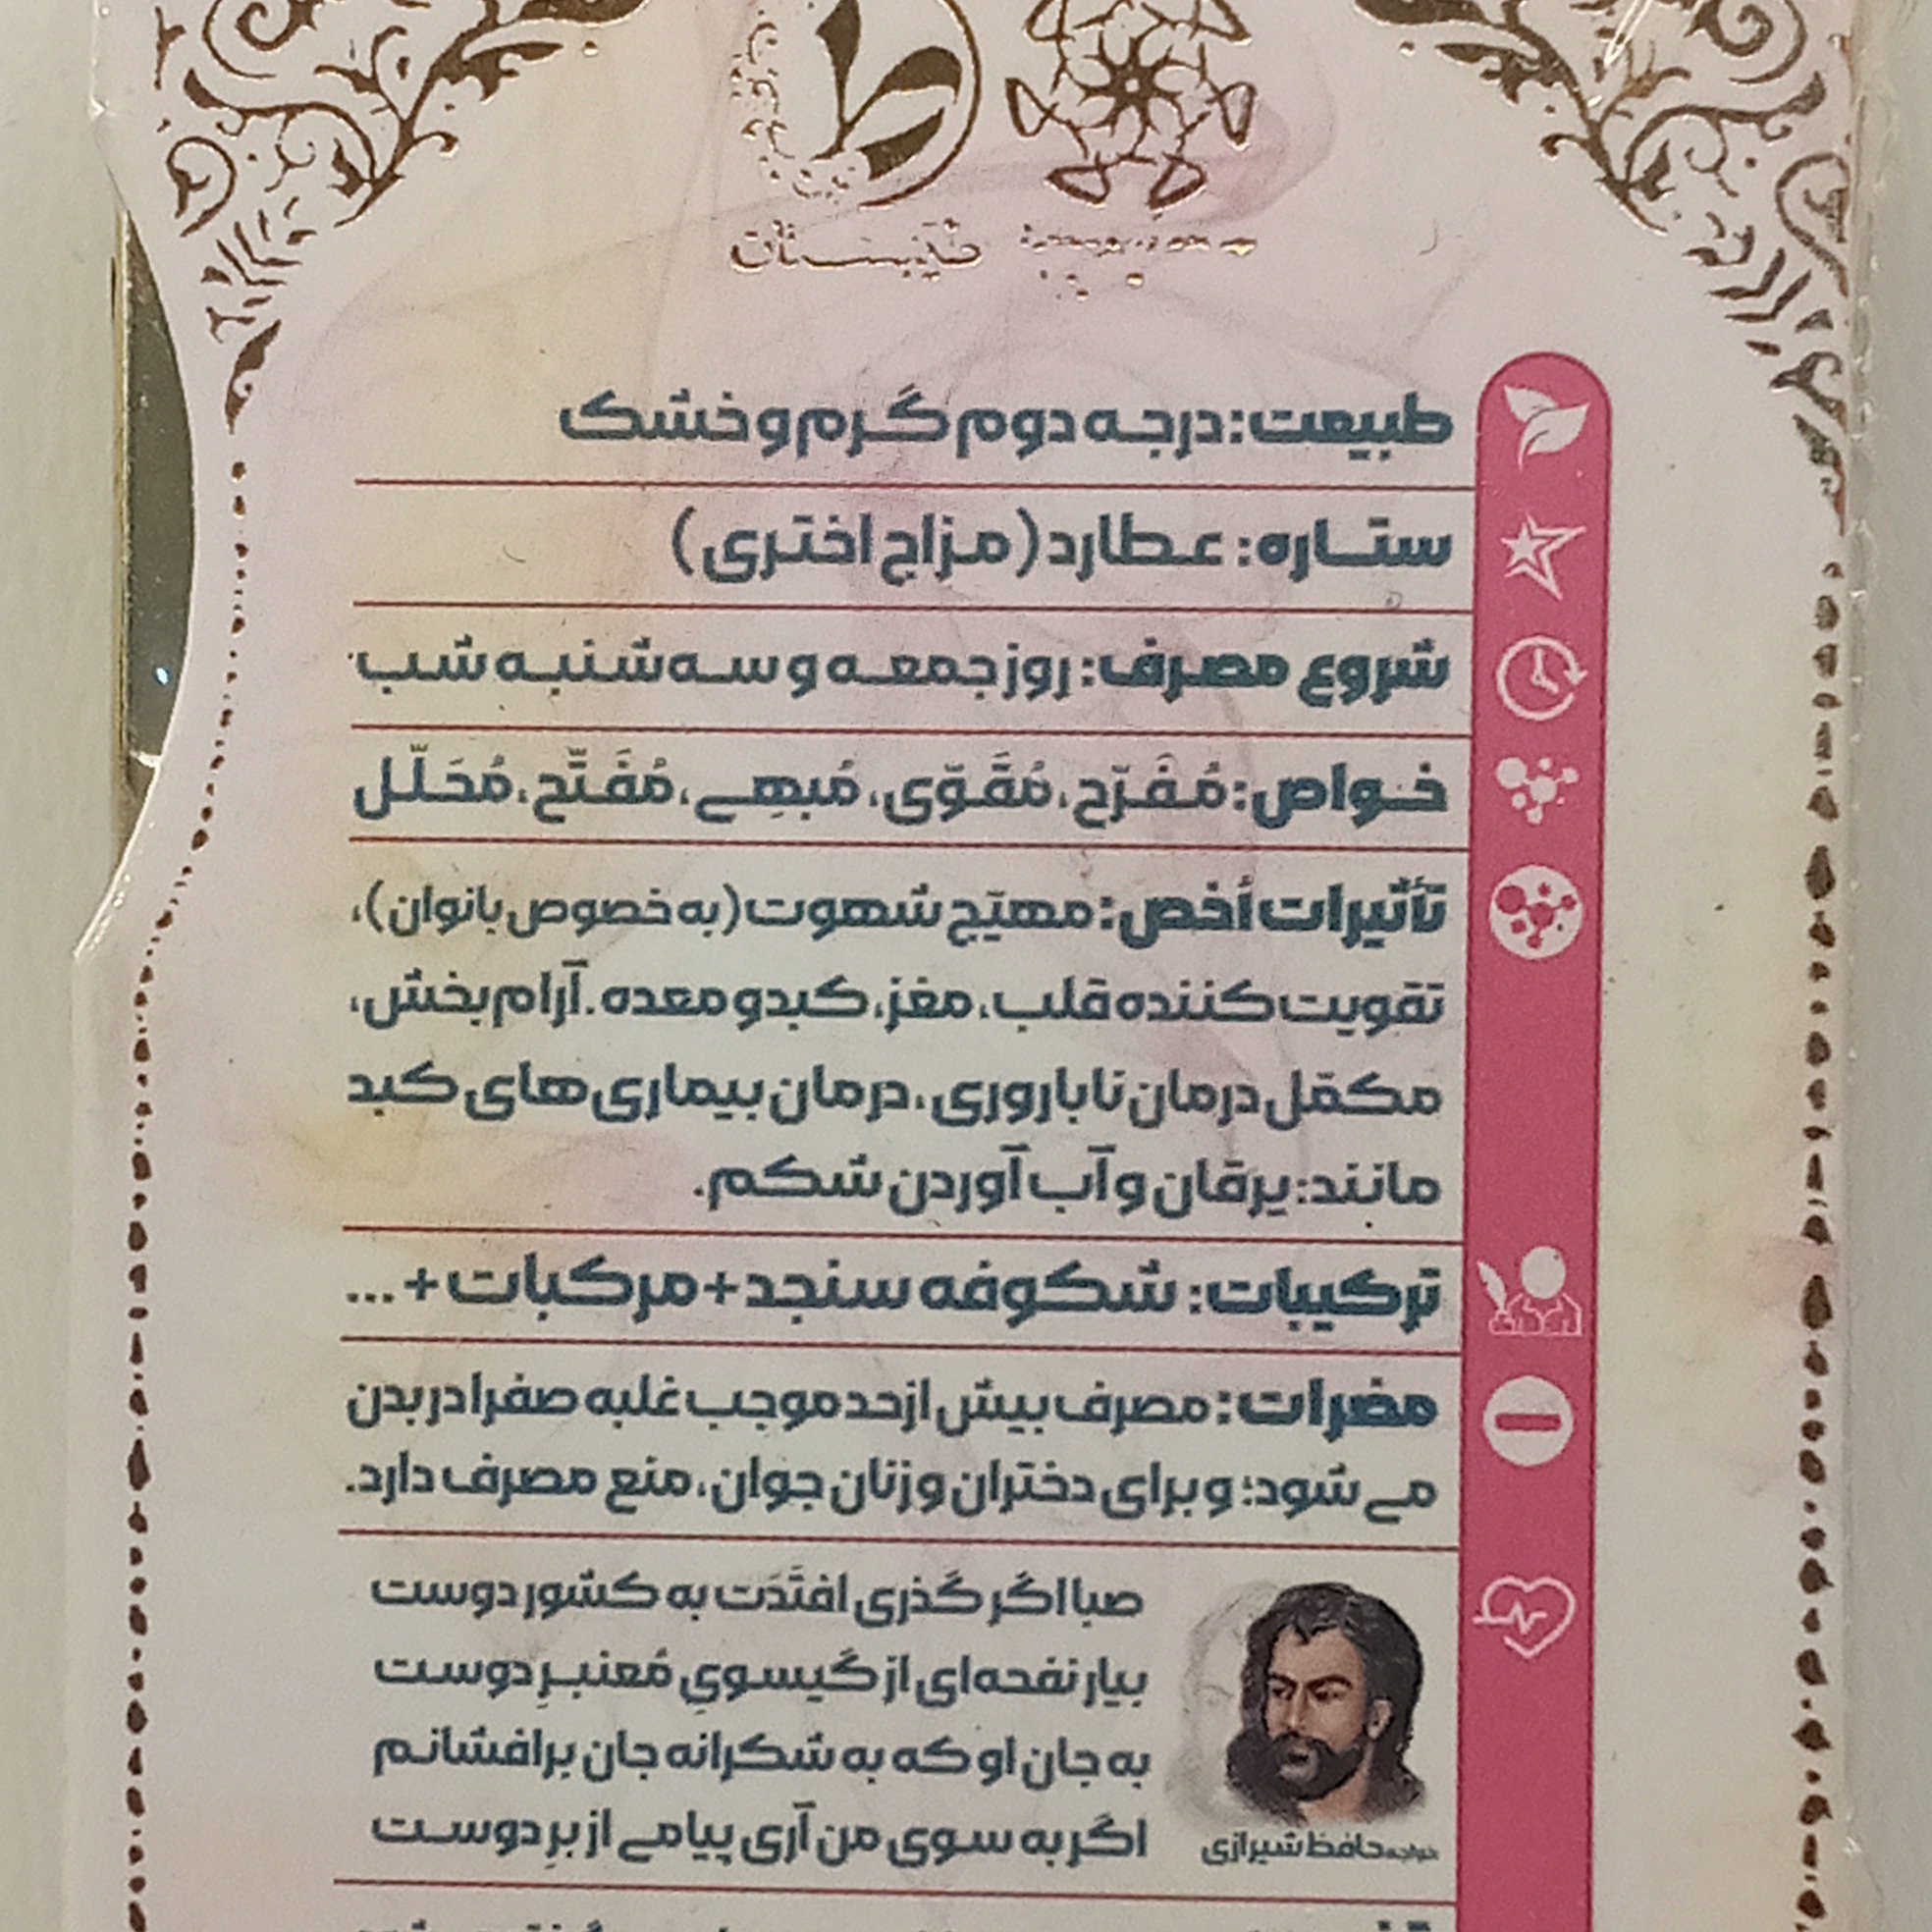 طبیستان
طبیعت: درجه دوم گرم و خشک
ستاره: عطارد (مزاج اختری)
شروع مصرف: روز جمعه و سه‌شنبه شب
خواص: مُفَرّح، مُقَوّی، مُبهِی، مُفَتِّح، مُحَلِّل
تأثیرات أخص: مهیّج شهوت (به خصوص بانوان)،
تقویت کننده قلب، مغز، کبد و معده. آرام بخش،
مکمّل درمان ناباروری، درمان بیماری‌های کبد
مانند: یرقان و آب آوردن شکم.
ترکیبات: شکوفه سنجد + مرکبات + ...
مضرات: مصرف بیش از حد موجب غلبه صفرا در بدن
می‌شود؛ و برای دختران و زنان جوان، منع مصرف دارد.
صبا اگر گذری افتَدَت به کشور دوست
بیار نفحه‌ای از گیسویِ مُعنبرِ دوست
به جان او که به شکرانه جان برافشانم
اگر به سوی من آری پیامی از برِ دوست
خواجه حافظ شیرازی